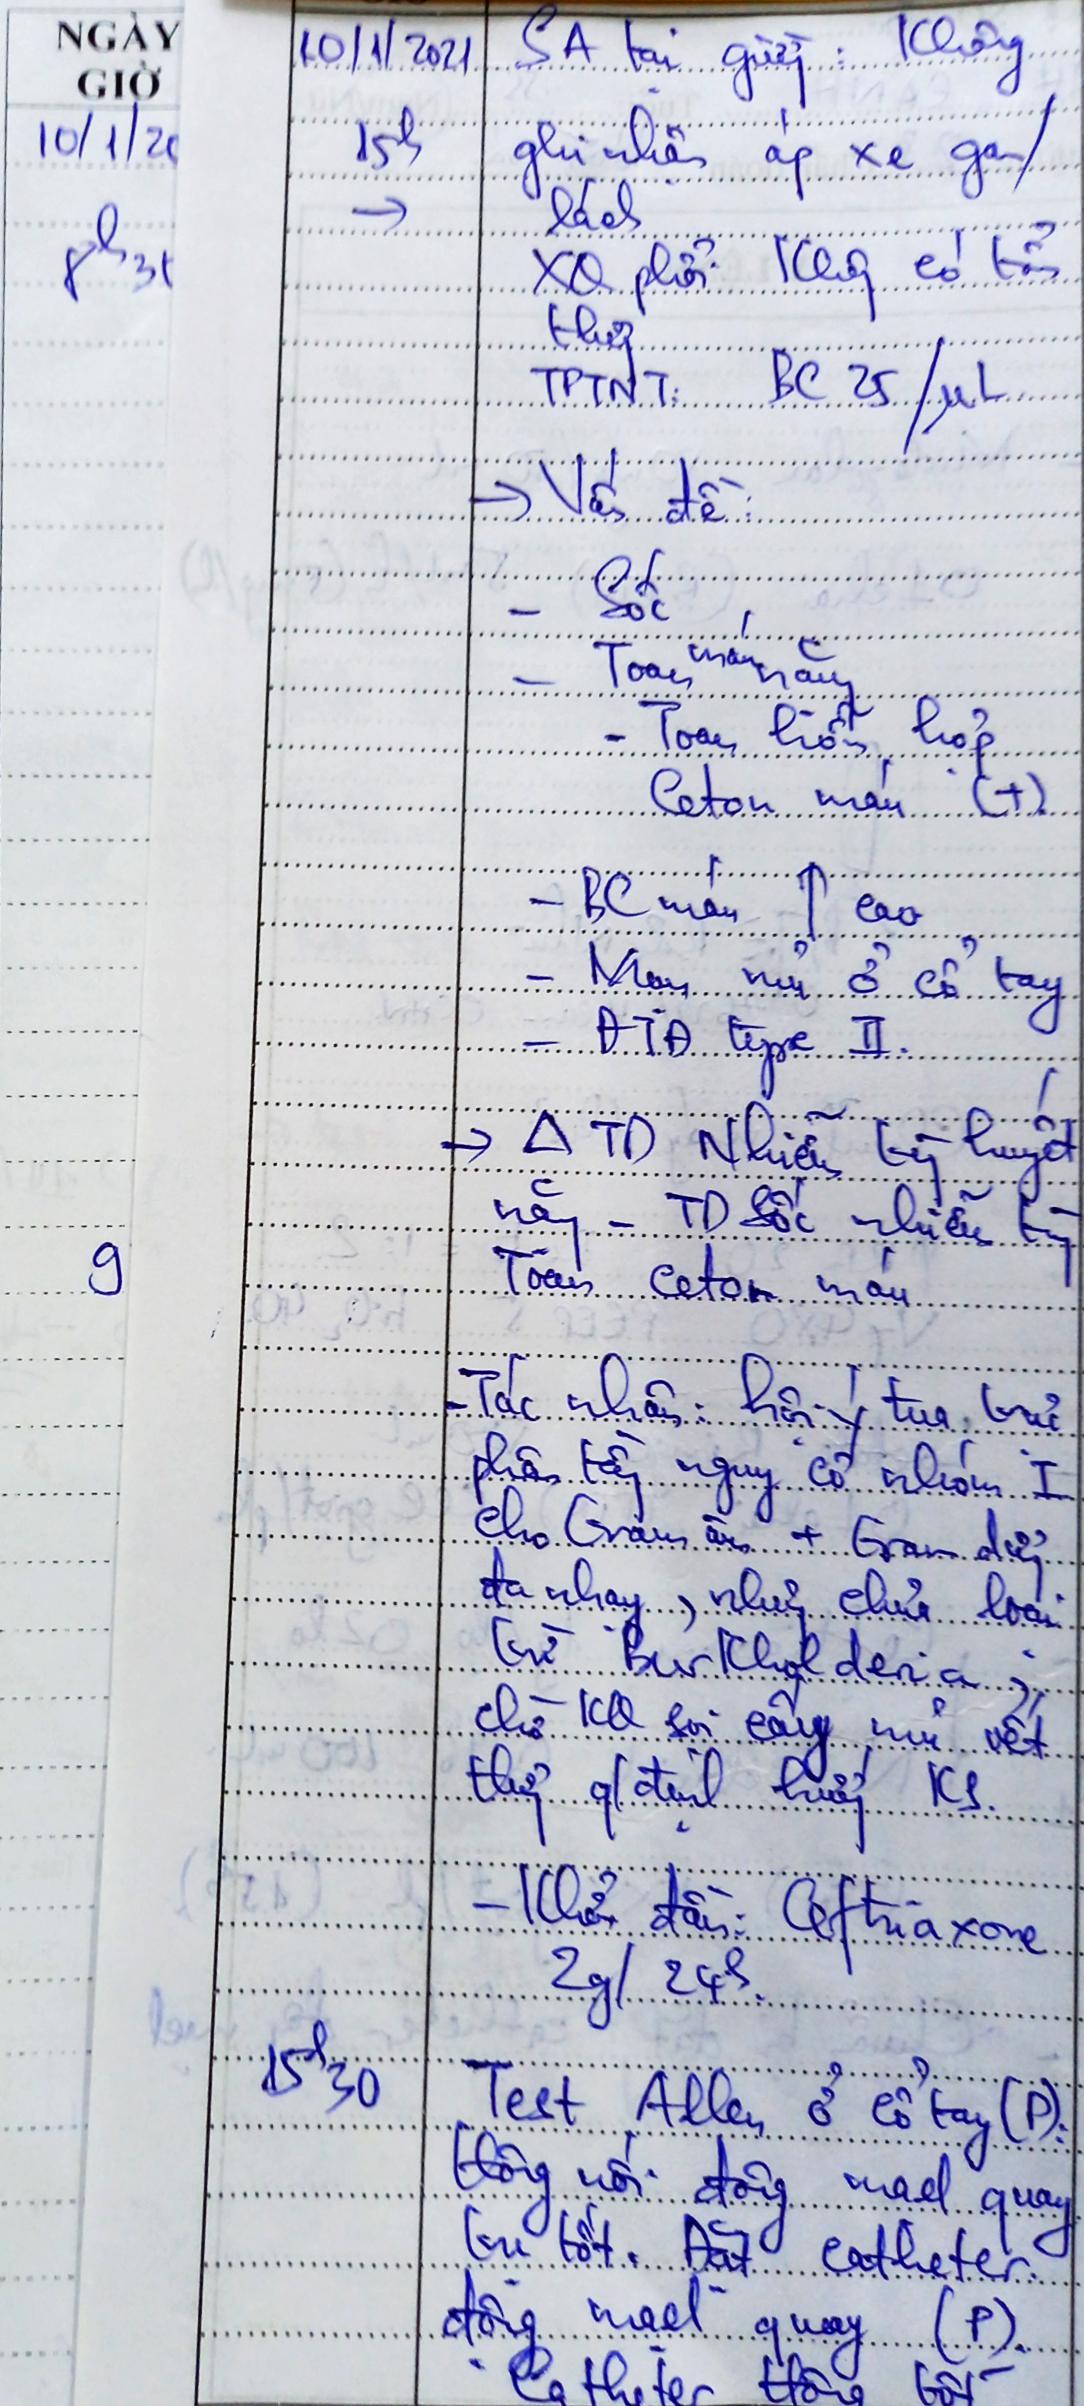 NGÀY
GIỜ
10/1/20
8h3
9
10/1/2021 SA tại giường: Không
15h ghi nhận áp xe gan/
→ lách
XQ phổi: Không có tổn
thương
TPTNT: BC 25/µL
→ Vấn đề:
- Sốc
- Toan máu nặng
- Toan hỗn hợp
Ceton máu (+).
- BC máu ↑ cao
- Mụn mủ ở cổ tay
- ĐTĐ type II.
→ Δ TD Nhiễm trùng huyết
nặng - TD Sốc nhiễm trùng
Toan ceton máu
- Tác nhân: hội ý tua trực
phân tầng nguy cơ nhóm I
cho Gram âm + Gram dương
đa nhạy, nhưng chưa loại
trừ Burkholderia;
chờ KQ soi cấy mủ vết
thương q/định hướng KS.
- Khởi đầu: Ceftriaxone
2g/24h.
15h30 Test Allen ở cổ tay (P):
thông nối động mạch quay
trụ tốt. Đặt catheter
động mạch quay (P).
Catheter thông tốt